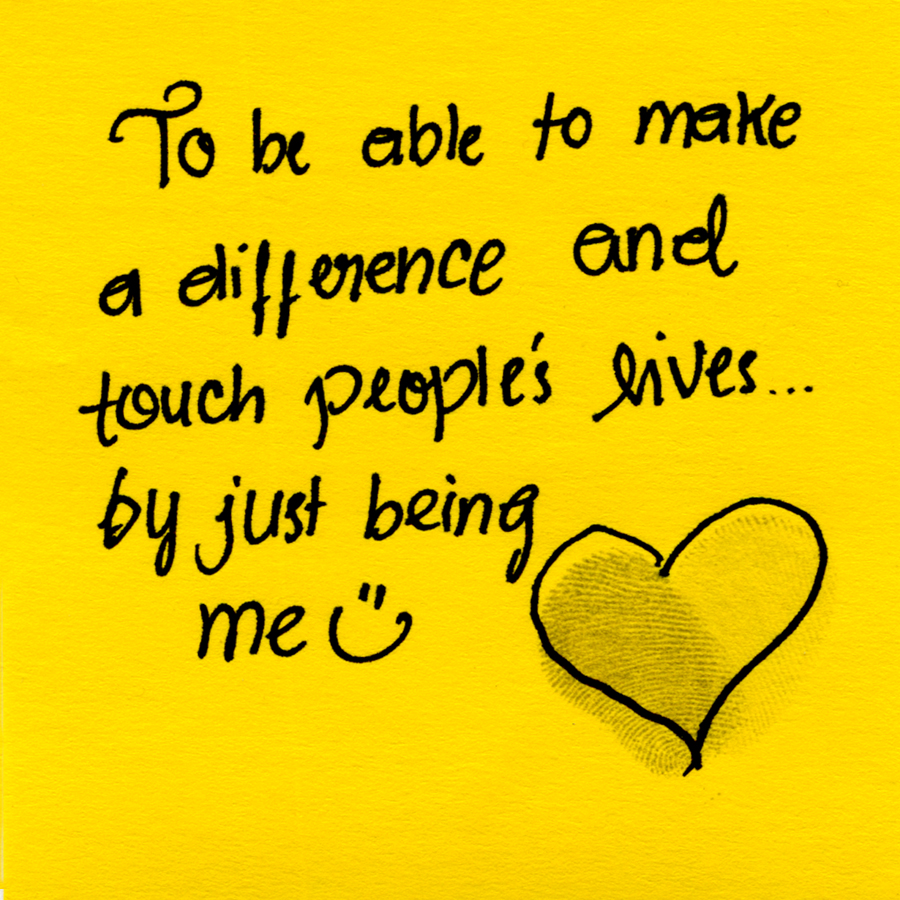 To be able to make
a difference and
touch people's lives...
by just being
me